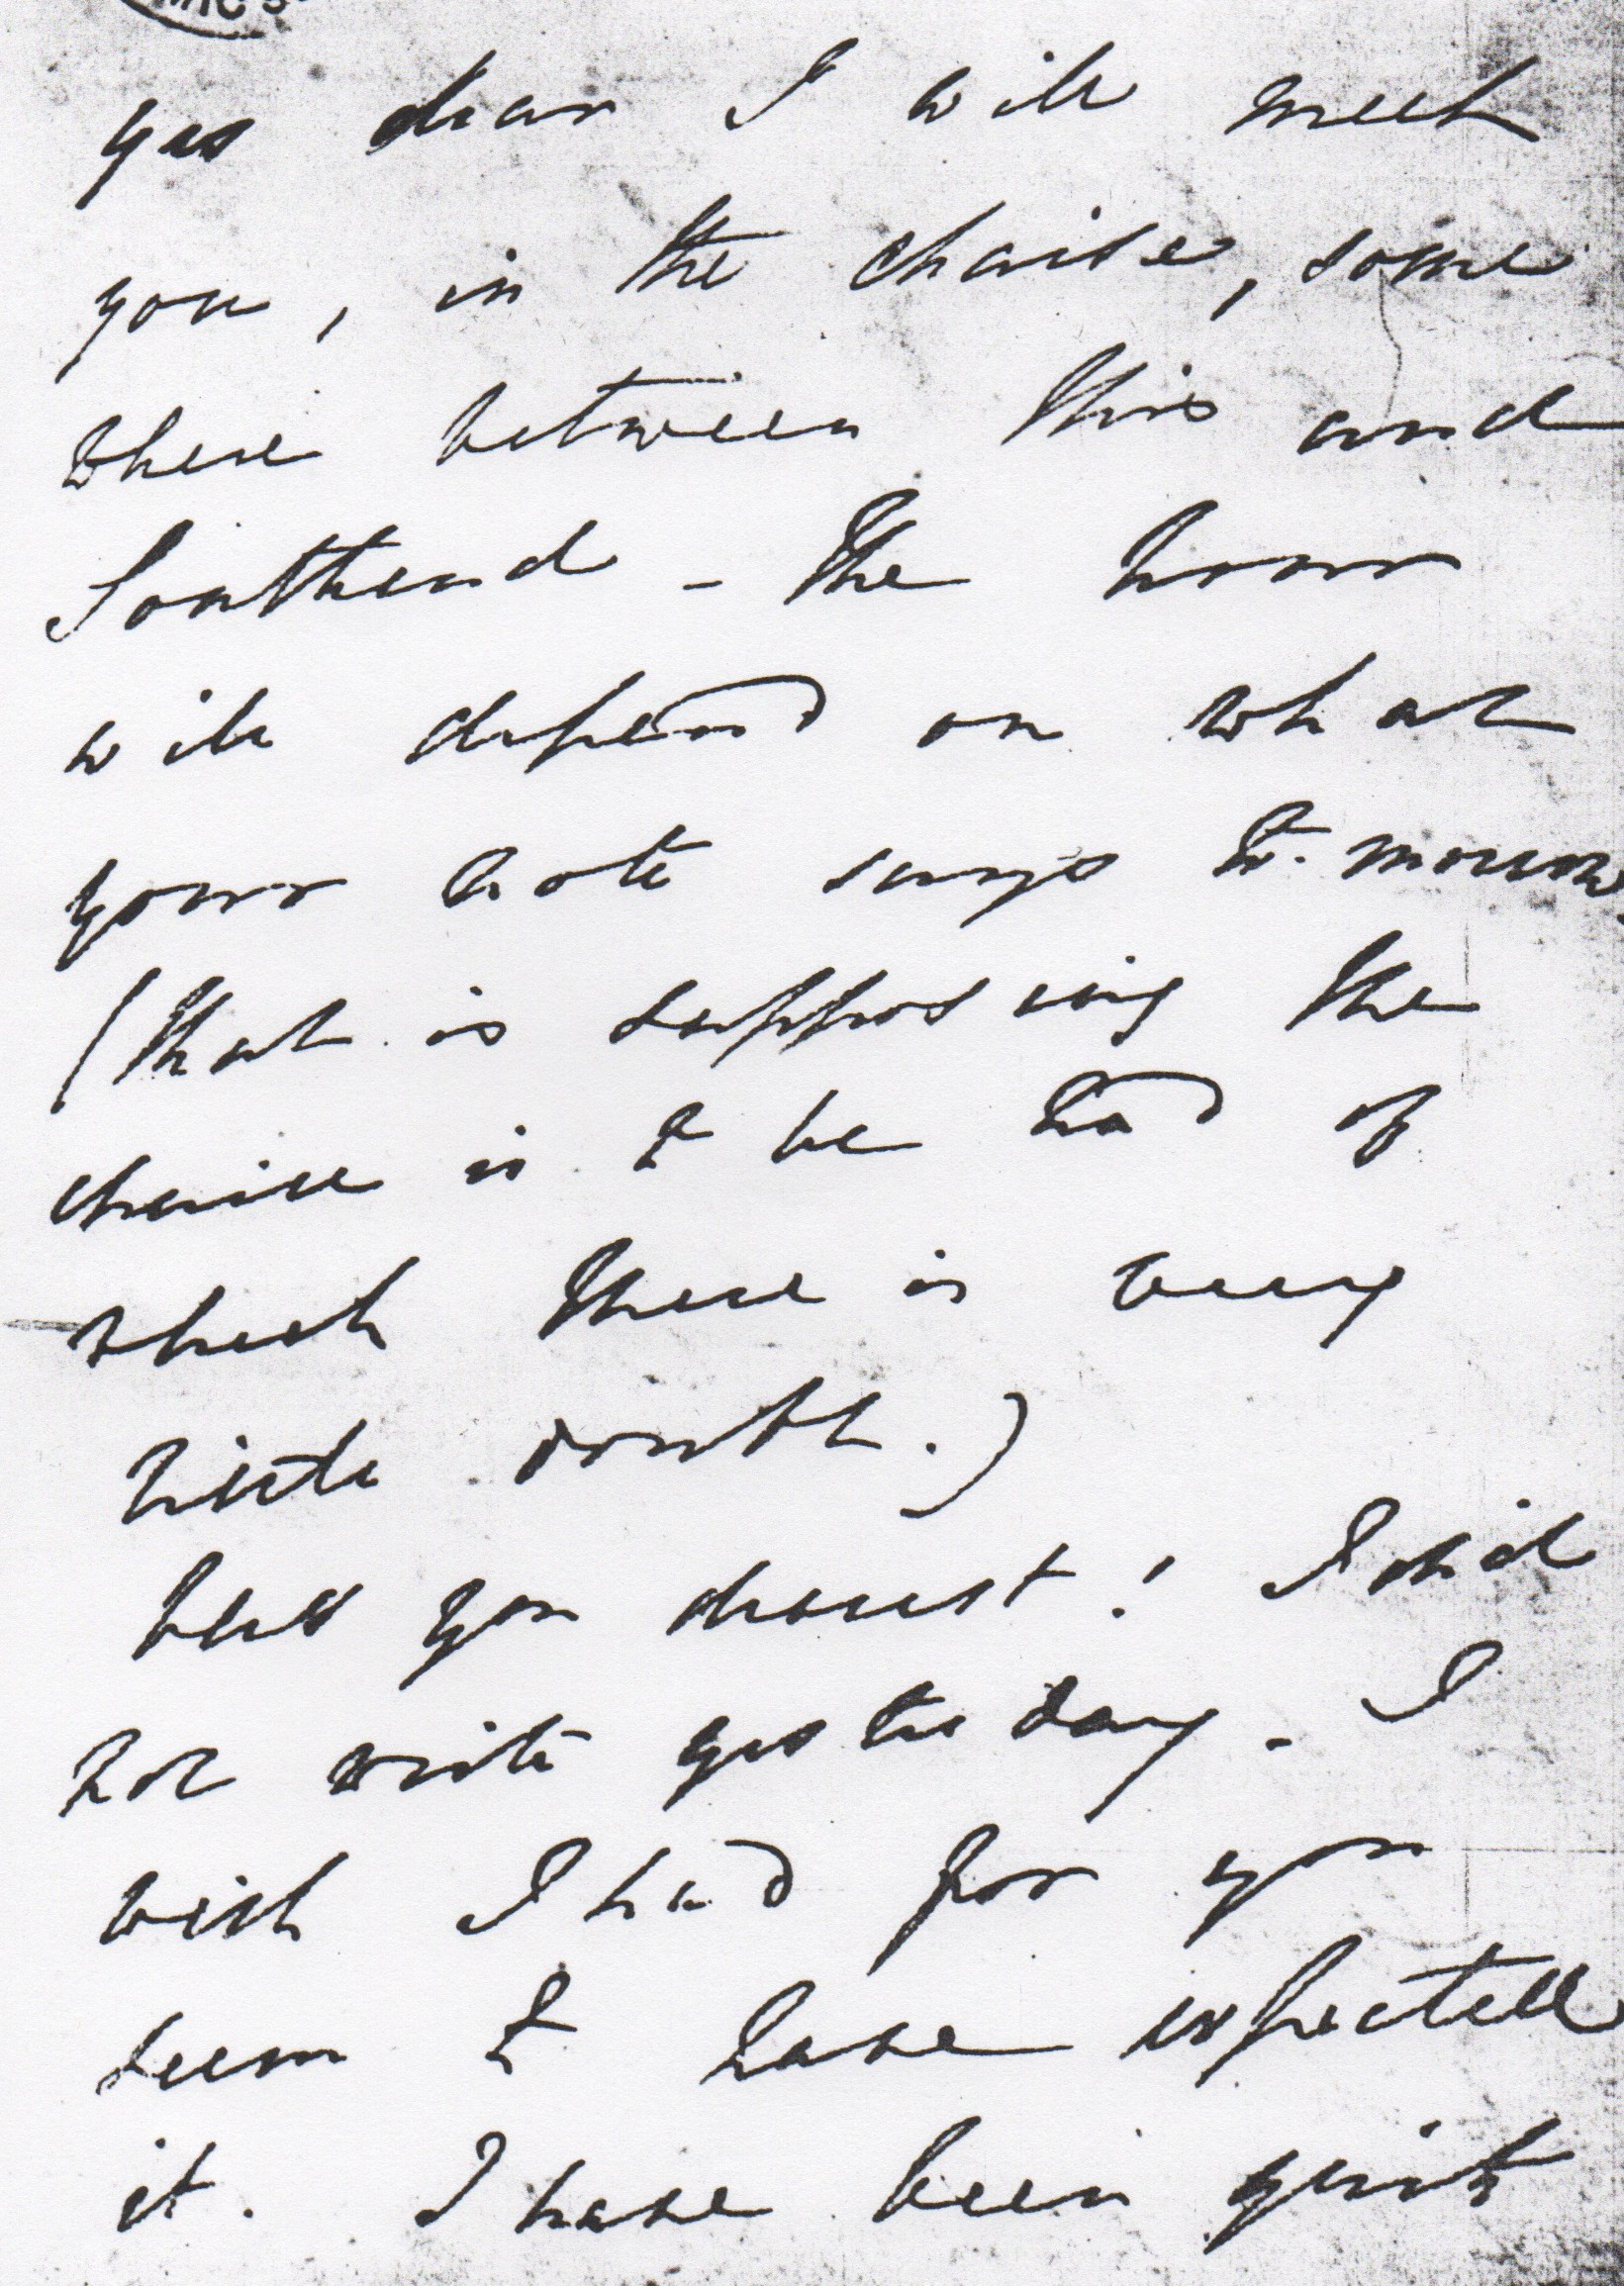 yes dear I will meet
you, in the chaise, some
where between this and
Southend - the hour
will depend on what
your note says to-morrow
(that is supposing the
chaise is to be had of
which there is very
little doubt.)
bless you dearest! I did
not write yesterday - I
wish I had for you
seem to have expected
it. I have been quite